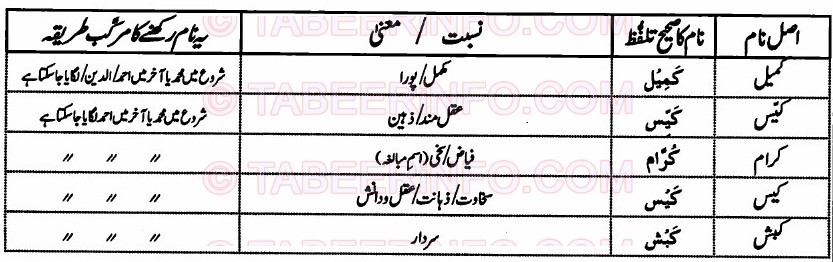 اصل نام | نام کا صحیح تلفظ | نسبت / معنیٰ | یہ نام رکھنے کا مرکب طریقہ
کمیل | کَمِیْل | مکمل/پورا | شروع میں محمد یا آخر میں احمد/الدین/لگایا جاسکتا ہے
کیّس | کَیِّس | عقل مند/ذہین | شروع میں محمد یا آخر میں احمد لگایا جاسکتا ہے
کرام | کُرَّام | فیاض/سخی (اسم مبالغہ) | 〃 〃 〃
کیس | کَیْس | سخاوت/ذہانت/عقل ودانش | 〃 〃 〃
کبش | کَبْش | سردار | 〃 〃 〃
© TABEERINFO.COM
© TABEERINFO.COM
© TABEERINFO.COM